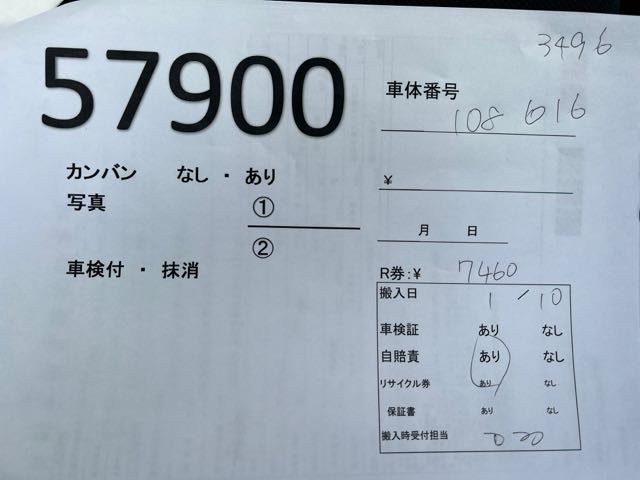 57900
3496
車体番号 108 616
カンバン なし ・ あり
写真 ①
②
¥
月 日
車検付 ・ 抹消
R券:¥ 7460
搬入日 1 / 10
車検証 あり なし
自賠責 あり なし
リサイクル券 あり なし
保証書 あり なし
搬入時受付担当